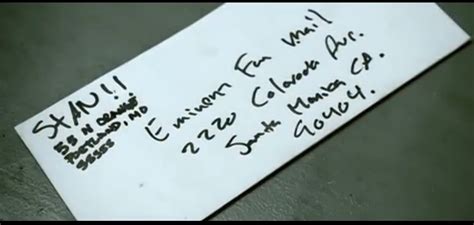 STAN!!
PORTLAND, MD
Eminem Fan Mail
2220 Colorado Ave.
Santa Monica CA.
90404.